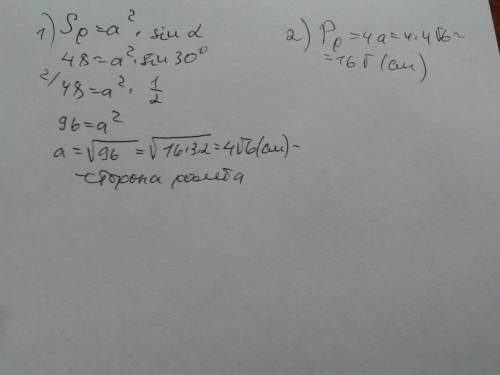 1) Sр = a² · sin α
48 = a² · sin 30°
2/ 48 = a² · 1/2
96 = a²
a = √96 = √16·3·2 = 4√6 (см) –
сторона ромба
2) Pр = 4a = 4·4√6 =
= 16√ (см)